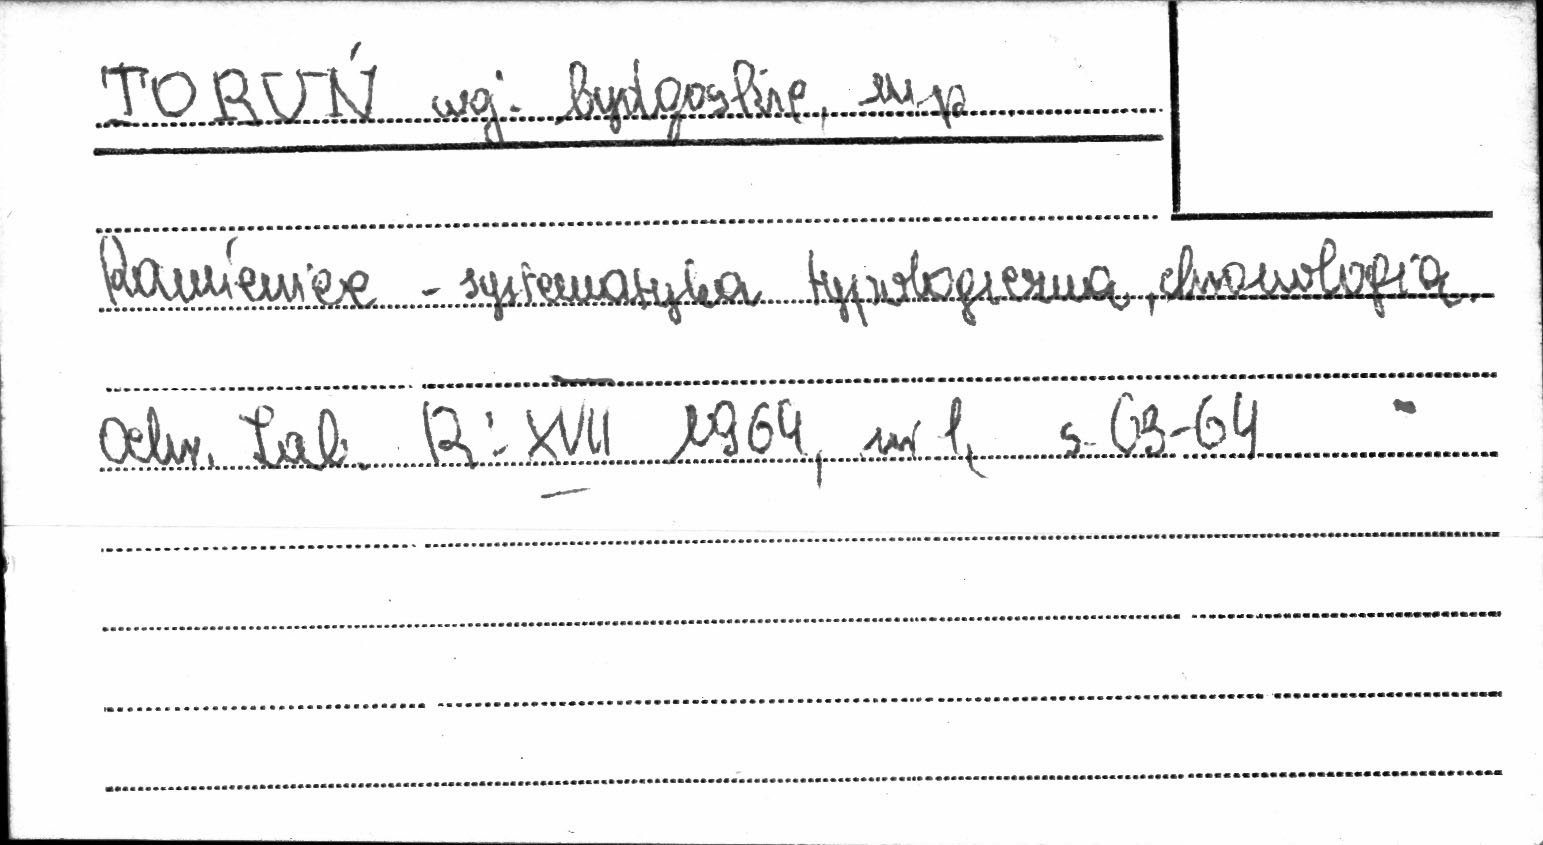 TORUŃ woj. bydgoskie, mp
Kamienice - systematyka typologiczna, chronologia.
Ochr. Zab. R: XVII 1964, nr 1, s. 63-64